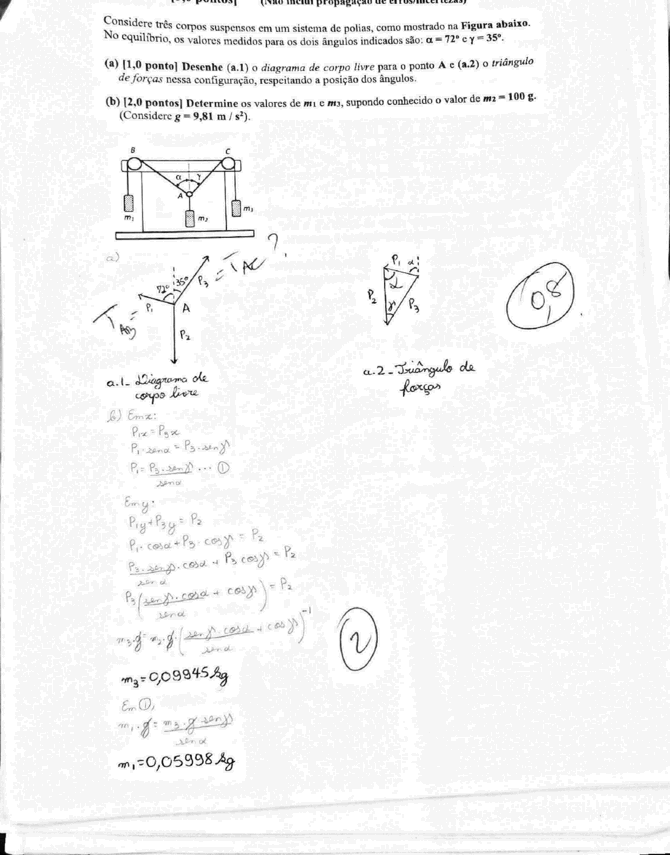 Considere três corpos suspensos em um sistema de polias, como mostrado na Figura abaixo.
No equilíbrio, os valores medidos para os dois ângulos indicados são: α = 72° e γ = 35°.
(a) [1,0 ponto] Desenhe (a.1) o diagrama de corpo livre para o ponto A e (a.2) o triângulo
de forças nessa configuração, respeitando a posição dos ângulos.
(b) [2,0 pontos] Determine os valores de m₁ e m₃, supondo conhecido o valor de m₂ = 100 g.
(Considere g = 9,81 m / s²).
B C
α γ
A
m₁ m₂ m₃
a)
72° 35° P₃ = T_AC ?
T_AB = P₁ A
P₂
P₁ α
α
P₂ γ P₃
0,8
a.1- Diagrama de
corpo livre
a.2- Triângulo de
forças
b) Em x:
P₁x = P₃x
P₁ · senα = P₃ · senγ
P₁ = P₃ · senγ ... ①
senα
Em y:
P₁y + P₃y = P₂
P₁ · cosα + P₃ · cosγ = P₂
P₃ · senγ · cosα + P₃ cosγ = P₂
senα
P₃ (senγ · cosα + cosγ) = P₂
senα
m₃ · g = m₂ · g · (senγ · cosα + cosγ)⁻¹
senα
2
m₃ = 0,09945 kg
Em ①,
m₁ · g = m₃ · g senγ
senα
m₁ = 0,05998 kg